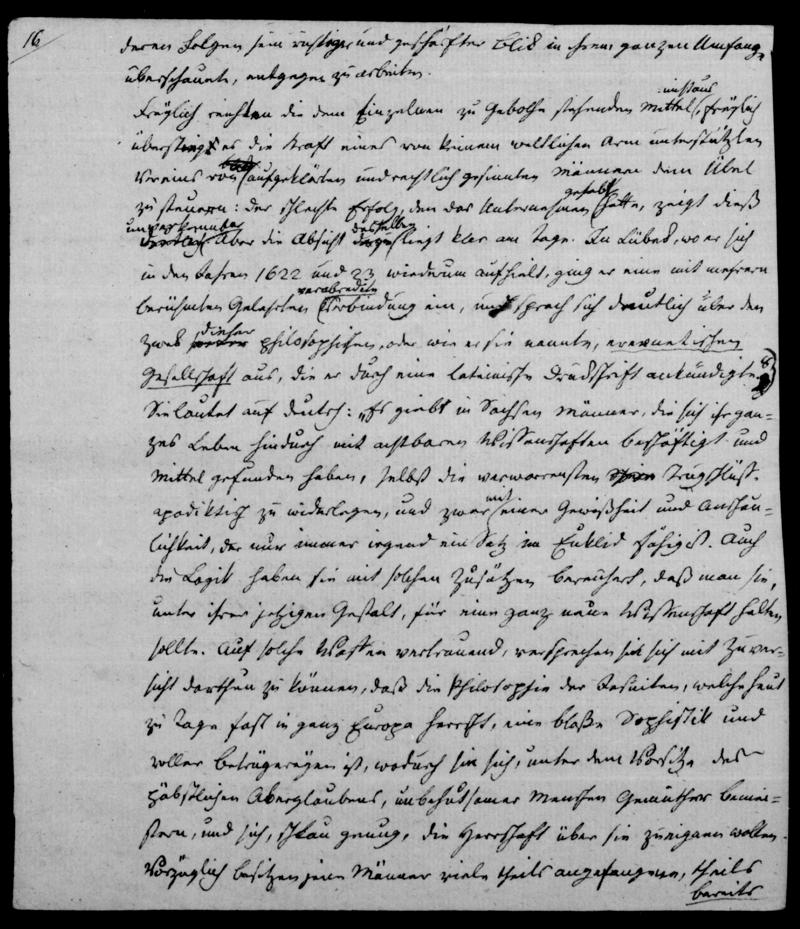 16
deren Folgen sein richtiger und geschärfter Blik in ihrem ganzen Umfang
überschaute, entgegen zu arbeiten.
Freylich reichten die dem Einzelnen zu Gebothe stehenden Mittel nicht aus, freylich
überstieg es die Kraft eines von keinem weltlichen Arm unterstützten
Vereins von aufgeklärten und rechtlich gesinnten Männern dem Übel
zu steuern: der schlechte Erfolg, den das Unternehmen gehabt hatte, zeigt dieß
unverkennbar
Aber die Absicht desselben liegt klar am Tage. In Lübek, wo er sich
in den Jahren 1622 und 23 wiederum aufhielt, ging er eine mit mehrern
berühmten Gelehrten verabredete Verbindung ein, und sprach sich deutlich über den
Zwek dieser philosophischen, oder wie er sie nannte, ereunetischen
Gesellschaft aus, die er durch eine lateinische Drukschrift ankündigte 8)
Sie lautet auf deutsch: „Es giebt in Sachsen Männer, die sich ihr gan=
zes Leben hindurch mit achtbaren Wissenschaften beschäftigt und
Mittel gefunden haben, selbst die verworrensten Trugschlüsse
apodiktisch zu widerlegen, und zwar mit einer Gewißheit und Anschau=
lichkeit, der nur immer irgend ein Satz im Euklid fähig ist. Auch
die Logik haben sie mit solchen Zusätzen bereichert, daß man sie,
unter ihrer jetzigen Gestalt, für eine ganz neue Wissenschaft halten
sollte. Auf solche Waffen vertrauend, versprechen sie sich mit Zuver=
sicht darthun zu können, daß die Philosophie der Jesuiten, welche heut
zu Tage fast in ganz Europa herrscht, eine bloße Sophistik und
voller Betrügereyen ist, wodurch sie sich, unter dem Vorsitze des
päbstlichen Aberglaubens, unbehutsamer Menschen Gemüther bemei=
stern, und sich, schlau genug, die Herrschaft über sie zueignen wollen.
Vorzüglich besitzen jene Männer viele theils angefangene, theils
bereits